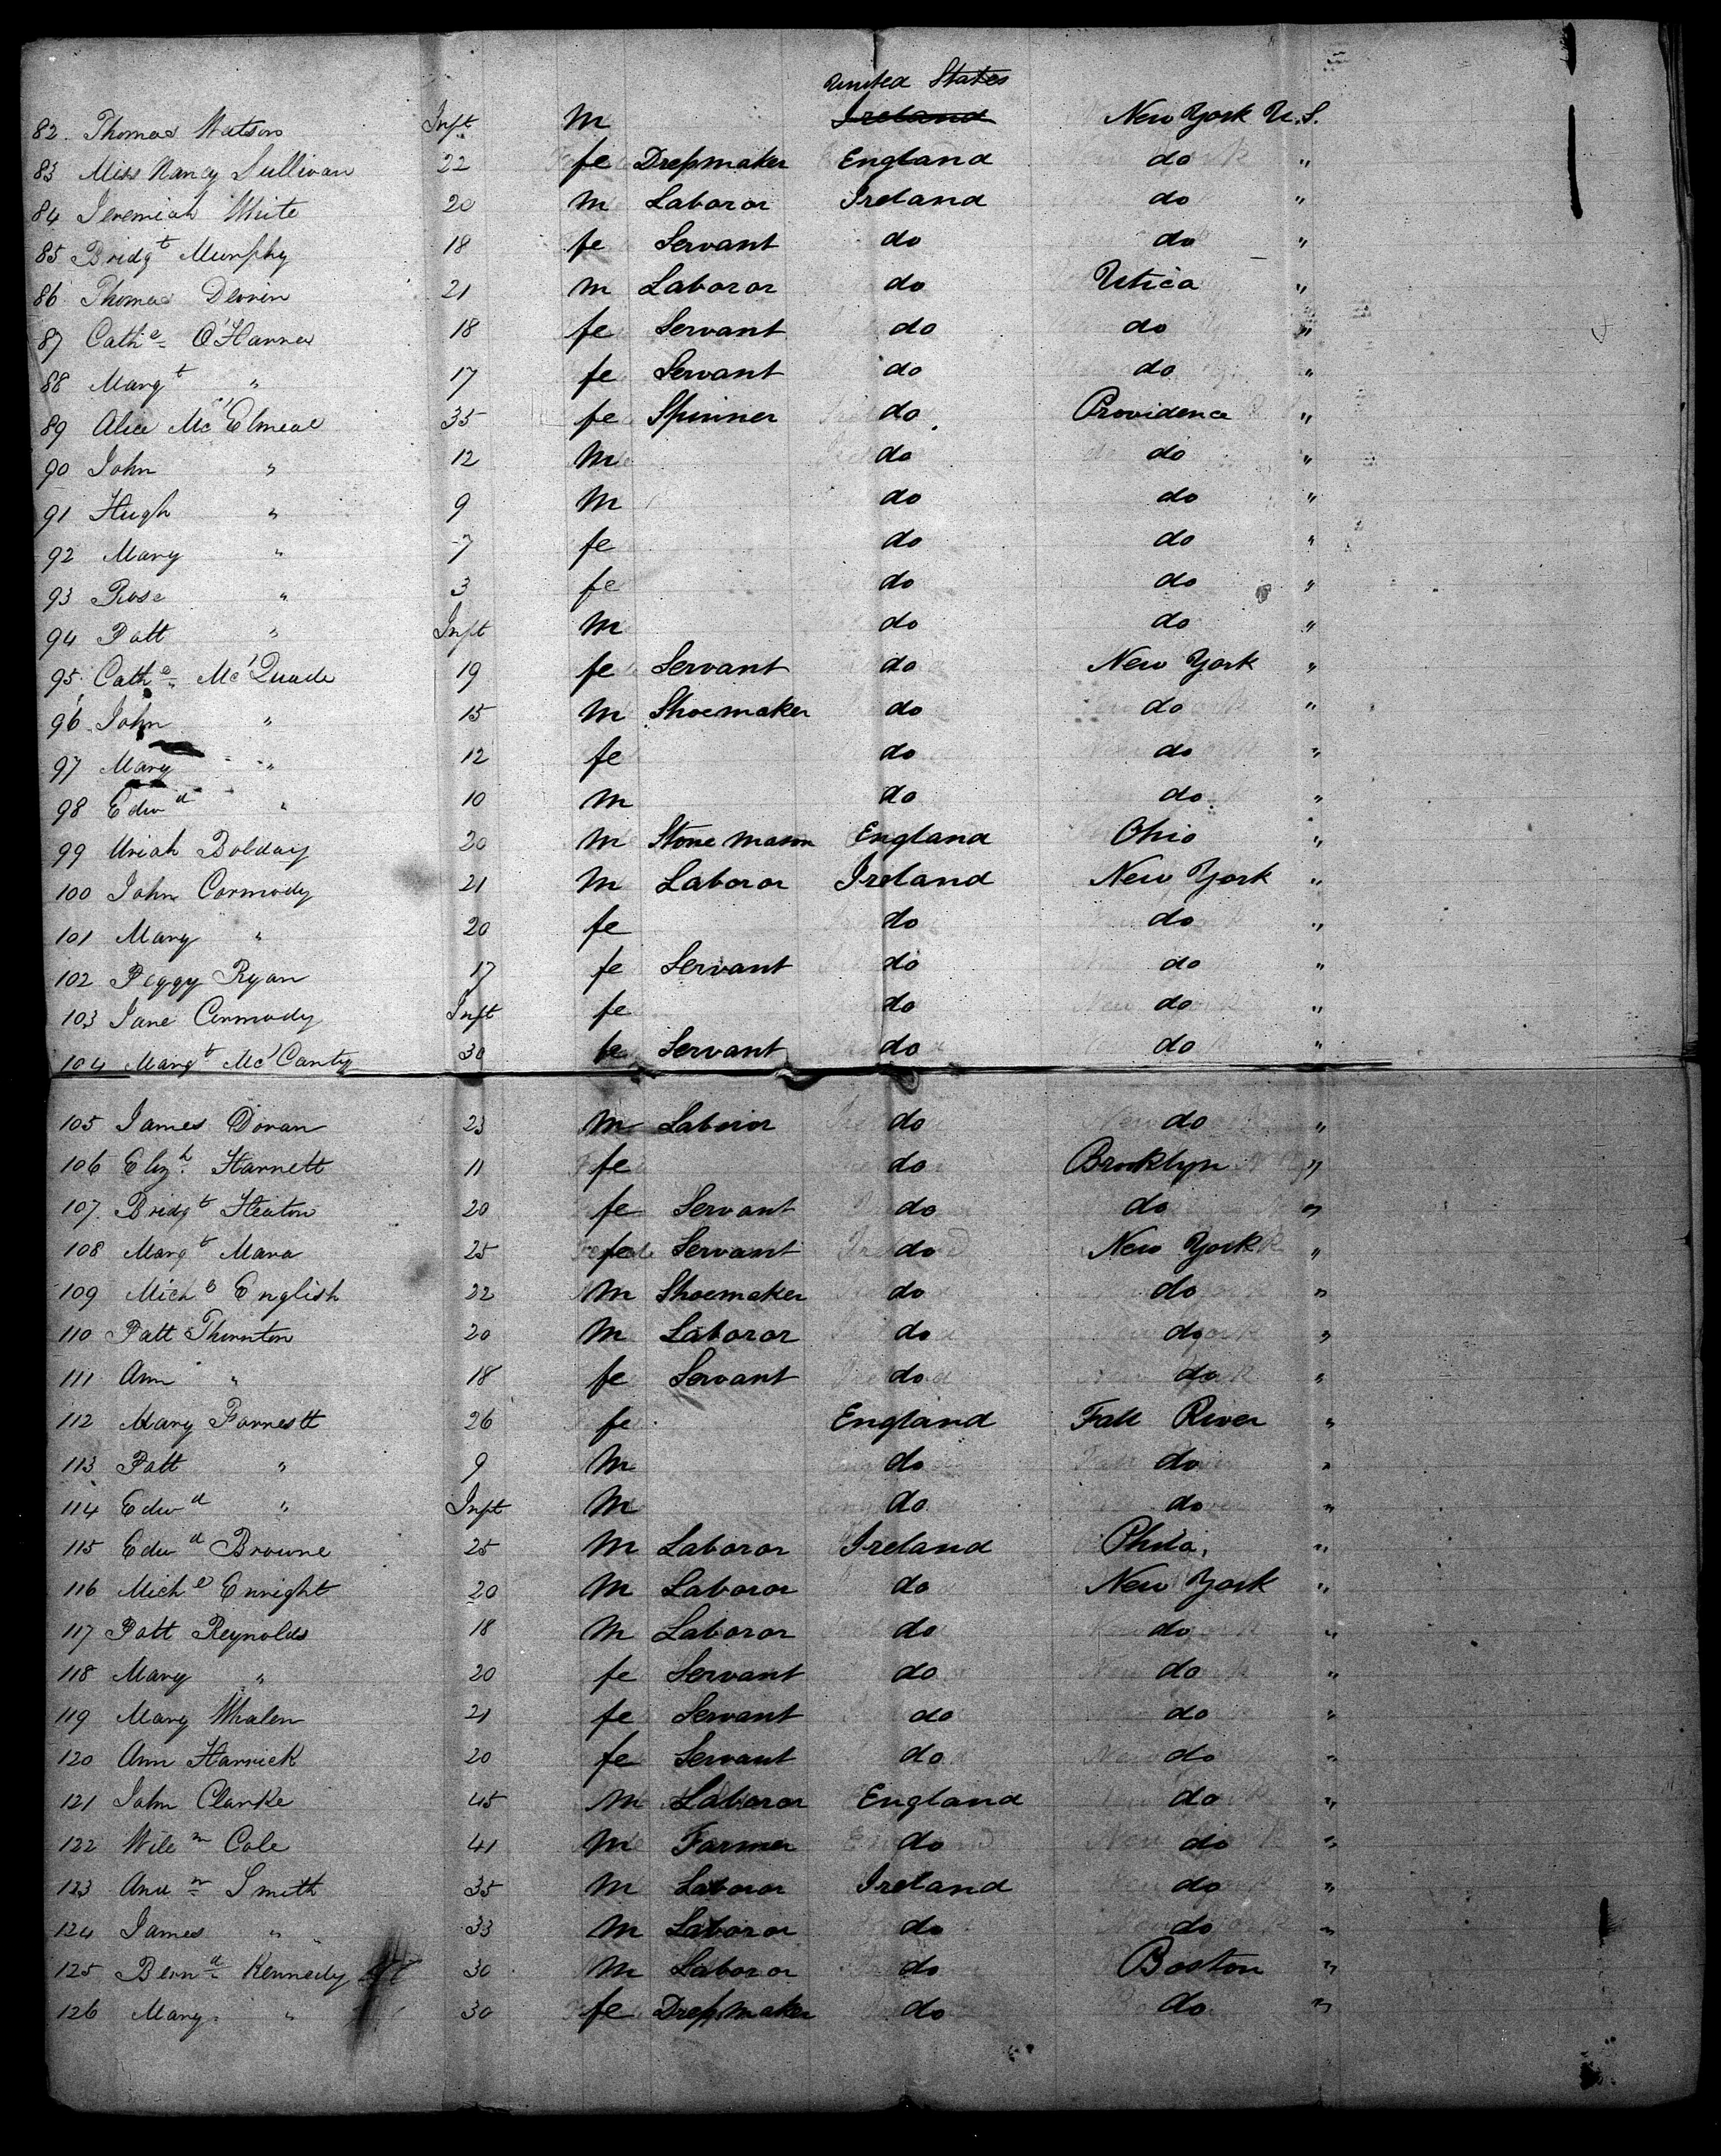 United States
82 Thomas Watson Inft M Ireland New York U.S.
83 Miss Nancy Sullivan 22 fe Dressmaker England do "
84 Jeremiah White 20 M Laboror Ireland do "
85 Bridgt Murphy 18 fe Servant do do "
86 Thomas Devrin 21 M Laboror do Utica "
87 Cathe O'Harra 18 fe Servant do do "
88 Margt " 17 fe Servant do do "
89 Alice Mc'Elmeal 35 fe Spinner do Providence "
90 John " 12 M do do "
91 Hugh " 9 M do do "
92 Mary " 7 fe do do "
93 Rose " 3 fe do do "
94 Patt " Inft M do do "
95 Cathe Mc'Quade 19 fe Servant do New York "
96 John " 15 M Shoemaker do do "
97 Mary " 12 fe do do "
98 Edwd " 10 M do do "
99 Uriah Bolday 20 M Stone Mason England Ohio "
100 John Cormody 21 M Laboror Ireland New York "
101 Mary " 20 fe do do "
102 Peggy Ryan 17 fe Servant do do "
103 Jane Cormody Inft fe do do "
104 Margt Mc'Canty 30 fe Servant do do "
105 James Doran 23 M Laboror do do "
106 Elizh Harnett 11 fe do Brooklyn "
107 Bridgt Heaton 20 fe Servant do do "
108 Margt Mara 25 fe Servant do New York "
109 Michl English 22 M Shoemaker do do "
110 Patt Thornton 20 M Laboror do do "
111 Ann " 18 fe Servant do do "
112 Mary Farnestt 26 fe England Fall River "
113 Patt " 9 M do do "
114 Edwd " Inft M do do "
115 Edwd Browne 25 M Laboror Ireland Phila. "
116 Michl Enright 20 M Laboror do New York "
117 Patt Reynolds 18 M Laboror do do "
118 Mary " 20 fe Servant do do "
119 Mary Whalen 21 fe Servant do do "
120 Ann Harrick 20 fe Servant do do "
121 John Clarke 45 M Laboror England do "
122 Willm Cole 41 M Farmer do do "
123 Andw Smith 35 M Laboror Ireland do "
124 James " 33 M Laboror do do "
125 Bernd Kennedy 30 M Laboror do Boston "
126 Mary " 30 fe Dressmaker do do "